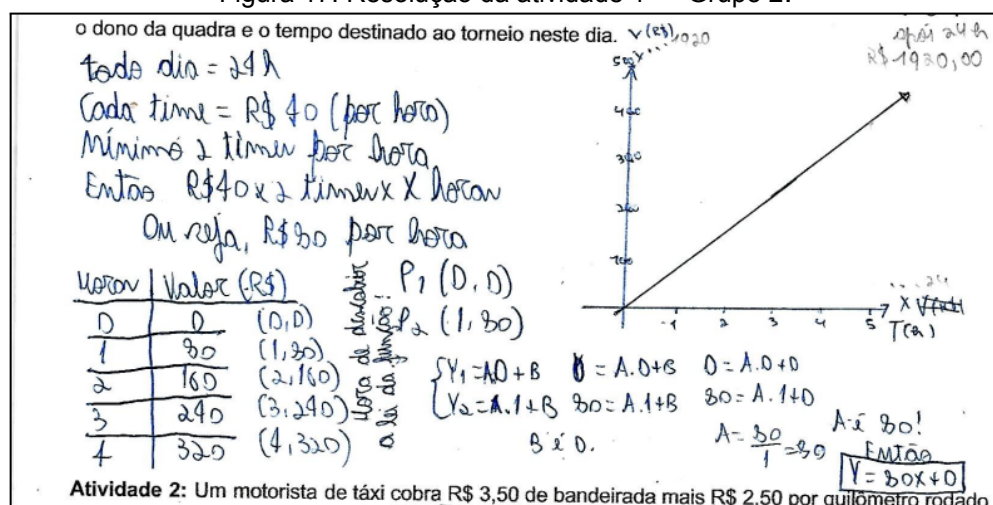 Figura 17: Resolução da atividade 1 – Grupo 2.
o dono da quadra e o tempo destinado ao torneio neste dia.
todo dia = 24 h
Cada time = R$ 40 (por hora)
Mínimo 2 times por hora
Então R$40 x 2 times x X horas
Ou seja, R$ 80 por hora
Horas | Valor (R$)
0 | 0 (0,0)
1 | 80 (1,80)
2 | 160 (2,160)
3 | 240 (3,240)
4 | 320 (4,320)
Hora de descobrir
a lei da função:
P1 (0,0)
P2 (1,80)
Y1 = A0 + B 0 = A.0+B 0 = A.0+0
Y2 = A.1+B 80 = A.1+B 80 = A.1+0
B é 0.
A = 80/1 = 80
A é 80!
Então
Y = 80X+0
V(R$)
1920
500
400
300
200
100
1 2 3 4 5
... 24
X
T(h)
após 24 h
R$ 1920,00
Atividade 2: Um motorista de táxi cobra R$ 3,50 de bandeirada mais R$ 2,50 por quilômetro rodado